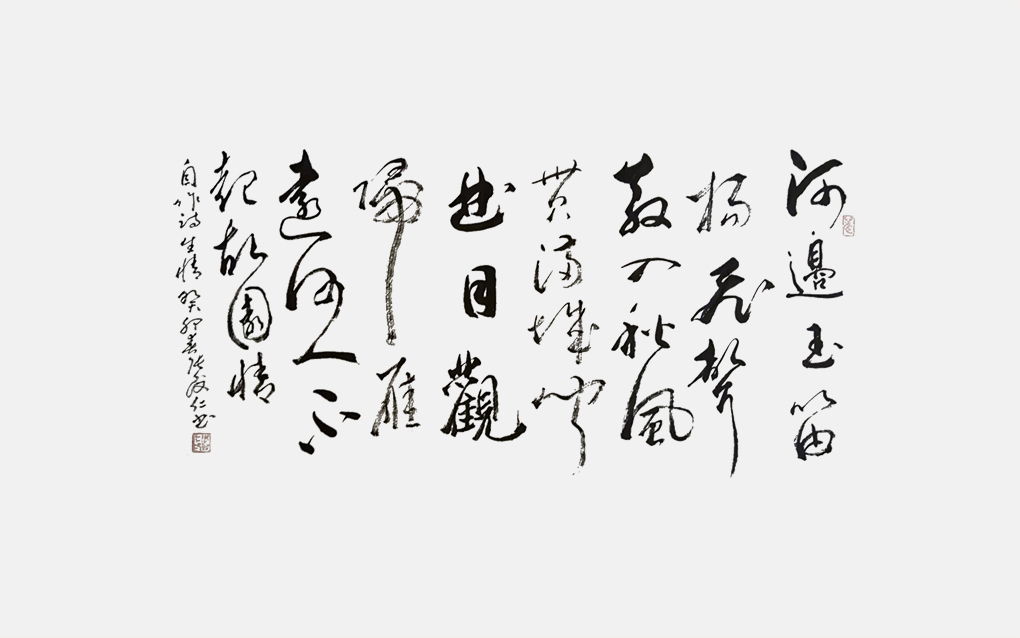 河邊玉笛
揚飛聲
散入秋風
黄滿城聞
曲目觀
歸雁
遠何人不
起故園情
自作詩生情癸卯春張成仁书